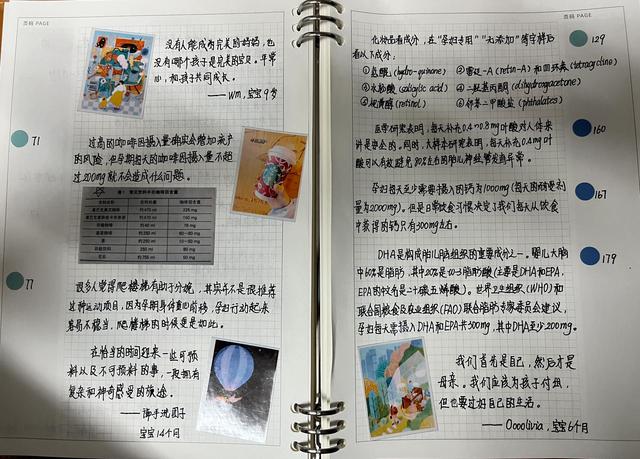 页码 PAGE
没有人能成为完美的妈妈,也
没有哪个孩子是完美的宝贝。平常
心,和孩子共同成长。
—— Wm,宝宝9岁
71
过高的咖啡因摄入量确实会增加流产
的风险,但孕期每天的咖啡因摄入量不超
过200mg就不会造成什么问题。
77
很多人觉得爬楼梯有助于分娩,其实并不是很推荐
这种运动项目,因为孕期身体重心前移,孕妇行动起来
容易不稳当,爬楼梯的时候更是如此。
在恰当的时间迎来一些可预
料以及不可预料的事,一段拥有
复杂和神奇感受的旅途。
—— 御手洗团子
宝宝14个月
页码 PAGE
化妆品看成分,在“孕妇专用”“无添加”等字样后
看以下成分:
129
①氢醌 (hydro-quinone)
②雷廷-A (retin-A) 和四环素 (tetracycline)
③水杨酸 (salicylic acid)
④二羟基丙酮 (dihydroxyacetone)
⑤视黄醇 (retinol)
⑥邻苯二甲酸盐 (phthalates)
医学研究表明,每天补充0.4~0.8mg叶酸对人体来
讲是安全的。同时,大样本研究表明,每天补充0.4mg叶
酸可以有效避免80%左右的胎儿神经管发育异常。
160
孕妇每天至少需要摄入的钙为1000mg (每天的耐受剂
量为2000mg)。但是日常饮食习惯决定了我们每天从饮食
中获得的钙只有300mg左右。
167
DHA是构成胎儿脑组织的重要成分之一。婴儿大脑
中60%是脂肪,其中20%是ω-3脂肪酸(主要是DHA和EPA,
EPA的软名是二十碳五烯酸)。世界卫生组织(WHO)和
联合国粮食及农业组织(FAO)联合脂肪专家委员会建议,
孕妇每天需摄入DHA和EPA共300mg,其中DHA至少200mg。
179
我们首先是自己,然后才是
母亲。我们应该为孩子付出,
但也要过好自己的生活。
—— Oooolivia,宝宝6个月